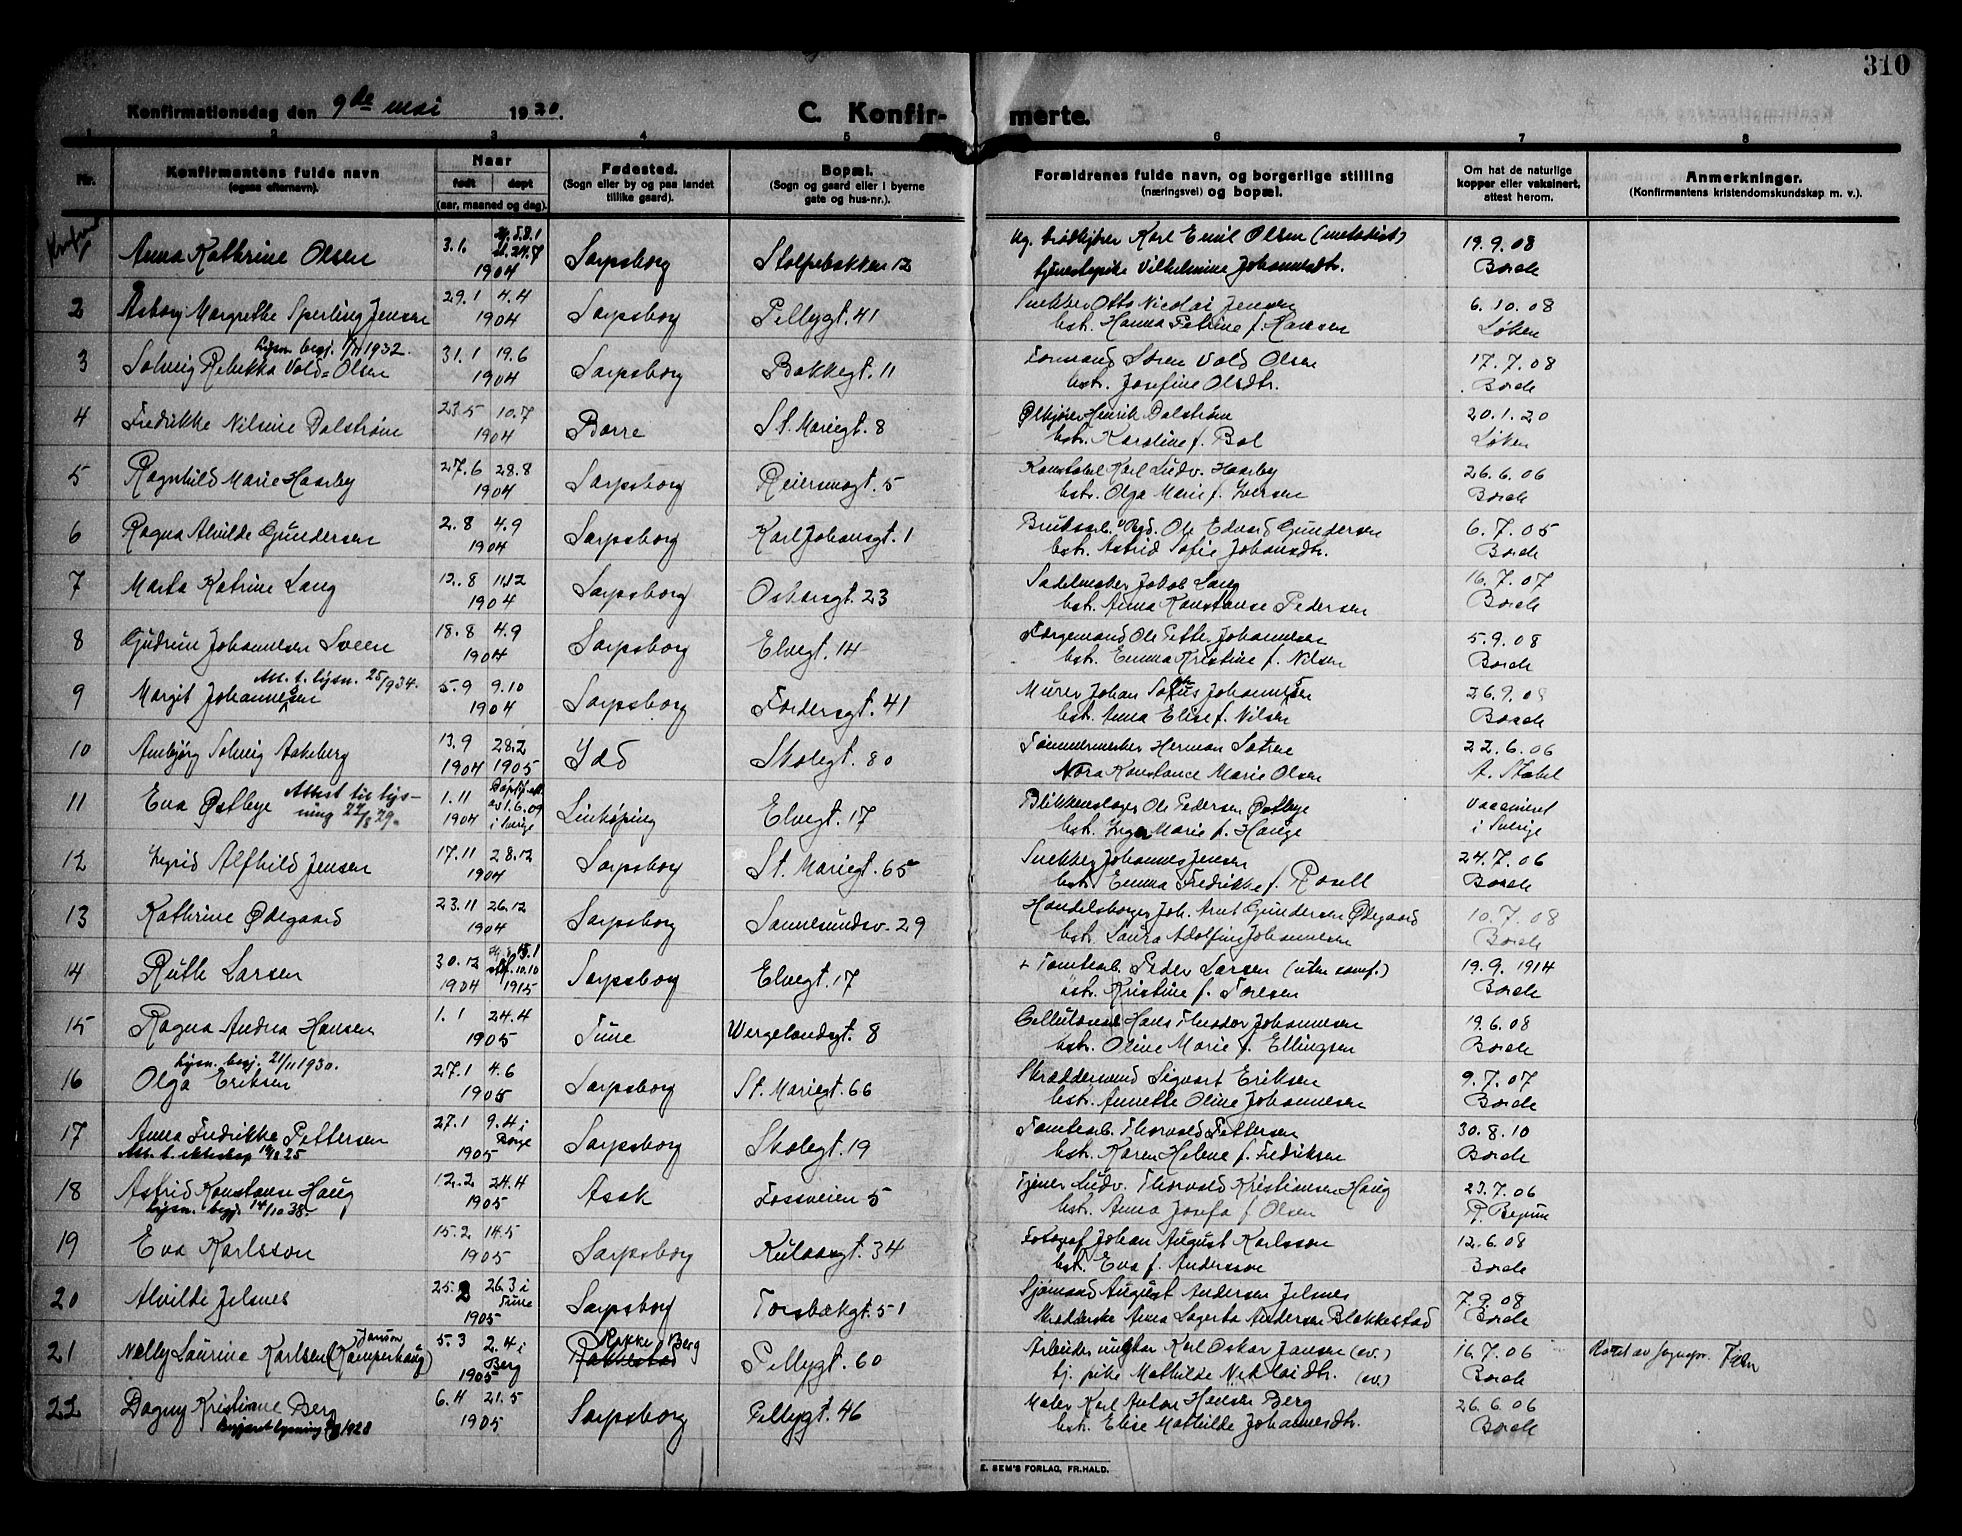 310
Konfirmationsdag den 9de mai 1920.
C. Konfir- merte.
1 2 3 4 5 6 7 8
Nr.
Konfirmantens fulde navn
(ogsaa efternavn).
Naar
født døpt
(aar, maaned og dag).
Fødested.
(Sogn eller by og paa landet
tillike gaard).
Bopæl.
(Sogn og gaard eller i byerne
gate og hus-nr.).
Forældrenes fulde navn, og borgerlige stilling
(næringsvei) og bopæl.
Om hat de naturlige
kopper eller vaksinert,
attest herom.
Anmerkninger.
(Konfirmantens kristendomskundskap m. v.).
1 Anna Kathrine Olsen 3.6 1904 Sarpsborg Stolpebakken 12 Ug. brødkjører Karl Emil Olsen (metodist) 19.9.08
tjenestepike Vilhelmine Johannesdtr. Borch
2 Asborg Margrethe Sperling Jensen 29.1 4.4 1904 Sarpsborg Pellygt. 41 Snekker Otto Nicolai Jensen 6.10.08
hst. Hanna Petrine f. Hansen Løken
Lysn. begj. 1932.
3 Solveig Rebekka Vold-Olsen 31.1 19.6 1904 Sarpsborg Bakkegt. 11 Formand Søren Vold Olsen 17.7.08
hst. Josefine Olsdtr. Borch
4 Fredrikke Nilsine Dalstrøm 23.5 10.7 1904 Borre St. Mariegt. 8 Ølkjører Henrik Dalstrøm 20.1.20
hst. Karoline f. Bol Løken
5 Ragnhild Marie Haarby 27.6 28.8 1904 Sarpsborg Reiersengt. 5 Konstabel Karl Ludv. Haarby 26.6.06
hst. Olga Marie f. Iversen Borch
6 Ragna Alvilde Gundersen 2.8 4.9 1904 Sarpsborg Karl Johansgt. 1 Bruksarb. Ole Edvard Gundersen 6.7.05
hst. Astrid Sofie Johansdtr. Borch
7 Marta Katrine Lang 12.8 11.12 1904 Sarpsborg Oskarsgt. 23 Sadelmaker Jakob Lang 16.7.07
hst. Anna Konstanse Pedersen Borch
8 Gudrun Johannesen Sveen 18.8 4.9 1904 Sarpsborg Elvegt. 14 Færgemand Ole Petter Johannesen 5.9.08
hst. Emma Kristine f. Nilsen Borch
Att. t. lysn. 25/9 34.
9 Margit Johannessen 5.9 9.10 1904 Sarpsborg Fordersgt. 41 Murer Johan Sofus Johannessen 26.9.08
hst. Anna Elise f. Nilsen Borch
10 Annbjørg Solveig Aakeberg 13.9 1904 28.2 1905 Idd Skolegt. 80 Tømmermerker Herman Sætre 22.6.06
Nora Konstance Marie Olsen A. Stabel
11 Eva Østbye Attest til lys-
ning 22/8 29. 1.11 1904 1.6.09 i Sverige Linköping Elvegt. 17 Blikkenslager Ole Pedersen Østbye Vaccineret
hst. Inga Marie f. Hauge i Sverige
12 Ingrid Alfhild Jensen 17.11 28.12 1904 Sarpsborg St. Mariegt. 65 Snekker Johannes Jensen 24.7.06
hst. Emma Fredrikke f. Rosell Borch
13 Kathrine Ødegaard 23.11 26.12 1904 Sarpsborg Sannesundsv. 29 Handelsborger Joh. Arnt Gundersen Ødegaard 10.7.08
hst. Laura Adolfine Johannesen Borch
14 Ruth Larsen 30.12 1904 1915 Sarpsborg Elvegt. 17 Tomtearb. Peder Larsen (uten konf.) 19.9.1914
hst. Kristine f. Torlsen Borch
15 Ragna Andrea Hansen 1.1 24.4 1905 Tune Wergelandsgt. 8 Hans Theodor Johannesen 19.6.08
hst. Oline Marie f. Ellingsen Borch
Lysn. begj. 21/11 1930.
16 Olga Eriksen 27.1 4.6 1905 Sarpsborg St. Mariegt. 66 Skræddersvend Sigvart Eriksen 9.7.07
hst. Annette Oline Johannesen Borch
17 Anna Fredrikke Pettersen 27.1 9.4 i Borge 1905 Sarpsborg Skolegt. 19 Tomtearb. Thorvald Pettersen 30.8.10
Att. t. ekteskap 25 hst. Karen Helene f. Fredriksen Borch
18 Astrid Konstanse Haug 12.2 24.4 1905 Assk Fossveien 5 Tjener Ludv. Thorvald Kristiansen Haug 23.7.06
Lysn. begj. 14/10 38. hst. Anna Josefa f. Olsen
19 Eva Karlsson 15.2 14.5 1905 Sarpsborg Kulaasgt. 34 Fotograf Johan August Karlsson 12.6.08
hst. Eva f. Andersson Borch
20 Alvilde Jelsnes 25.2 26.3 i Tune 1905 Sarpsborg Torsbækgt. 51 Sjømand August Andersen Jelsnes 7.9.08
Skrædderske Anna Lagerta Andersen Blakkestad Borch
21 Nelly Laurine Karlsen (Kamperhaug) Janson 5.3 2.4 i Berg 1905 Rakkestad Rokke i Berg Pellygt. 60 Arbeider ungkar Karl Oskar Jansen (ev.) 16.7.06
tj. pike Mathilde Nikolaidtr. (ev.) Borch
22 Dagny Kristiane Berg 6.4 21.5 1905 Sarpsborg Pellygt. 46 Maler Karl Anton Hansen Berg 26.6.06
Begjæret lysning 1928 hst. Elise Mathilde Johannesdtr. Borch
E. SEM'S FORLAG, FR.HALD.